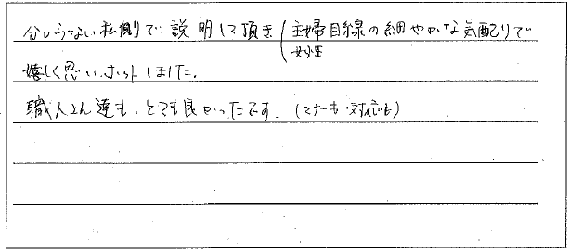 分らない私側で説明して頂き(主婦目線の細やかな気配りで
女性
嬉しく思いホットしました。
職人さん達も、とても良かったです。(マナーも・対応も)